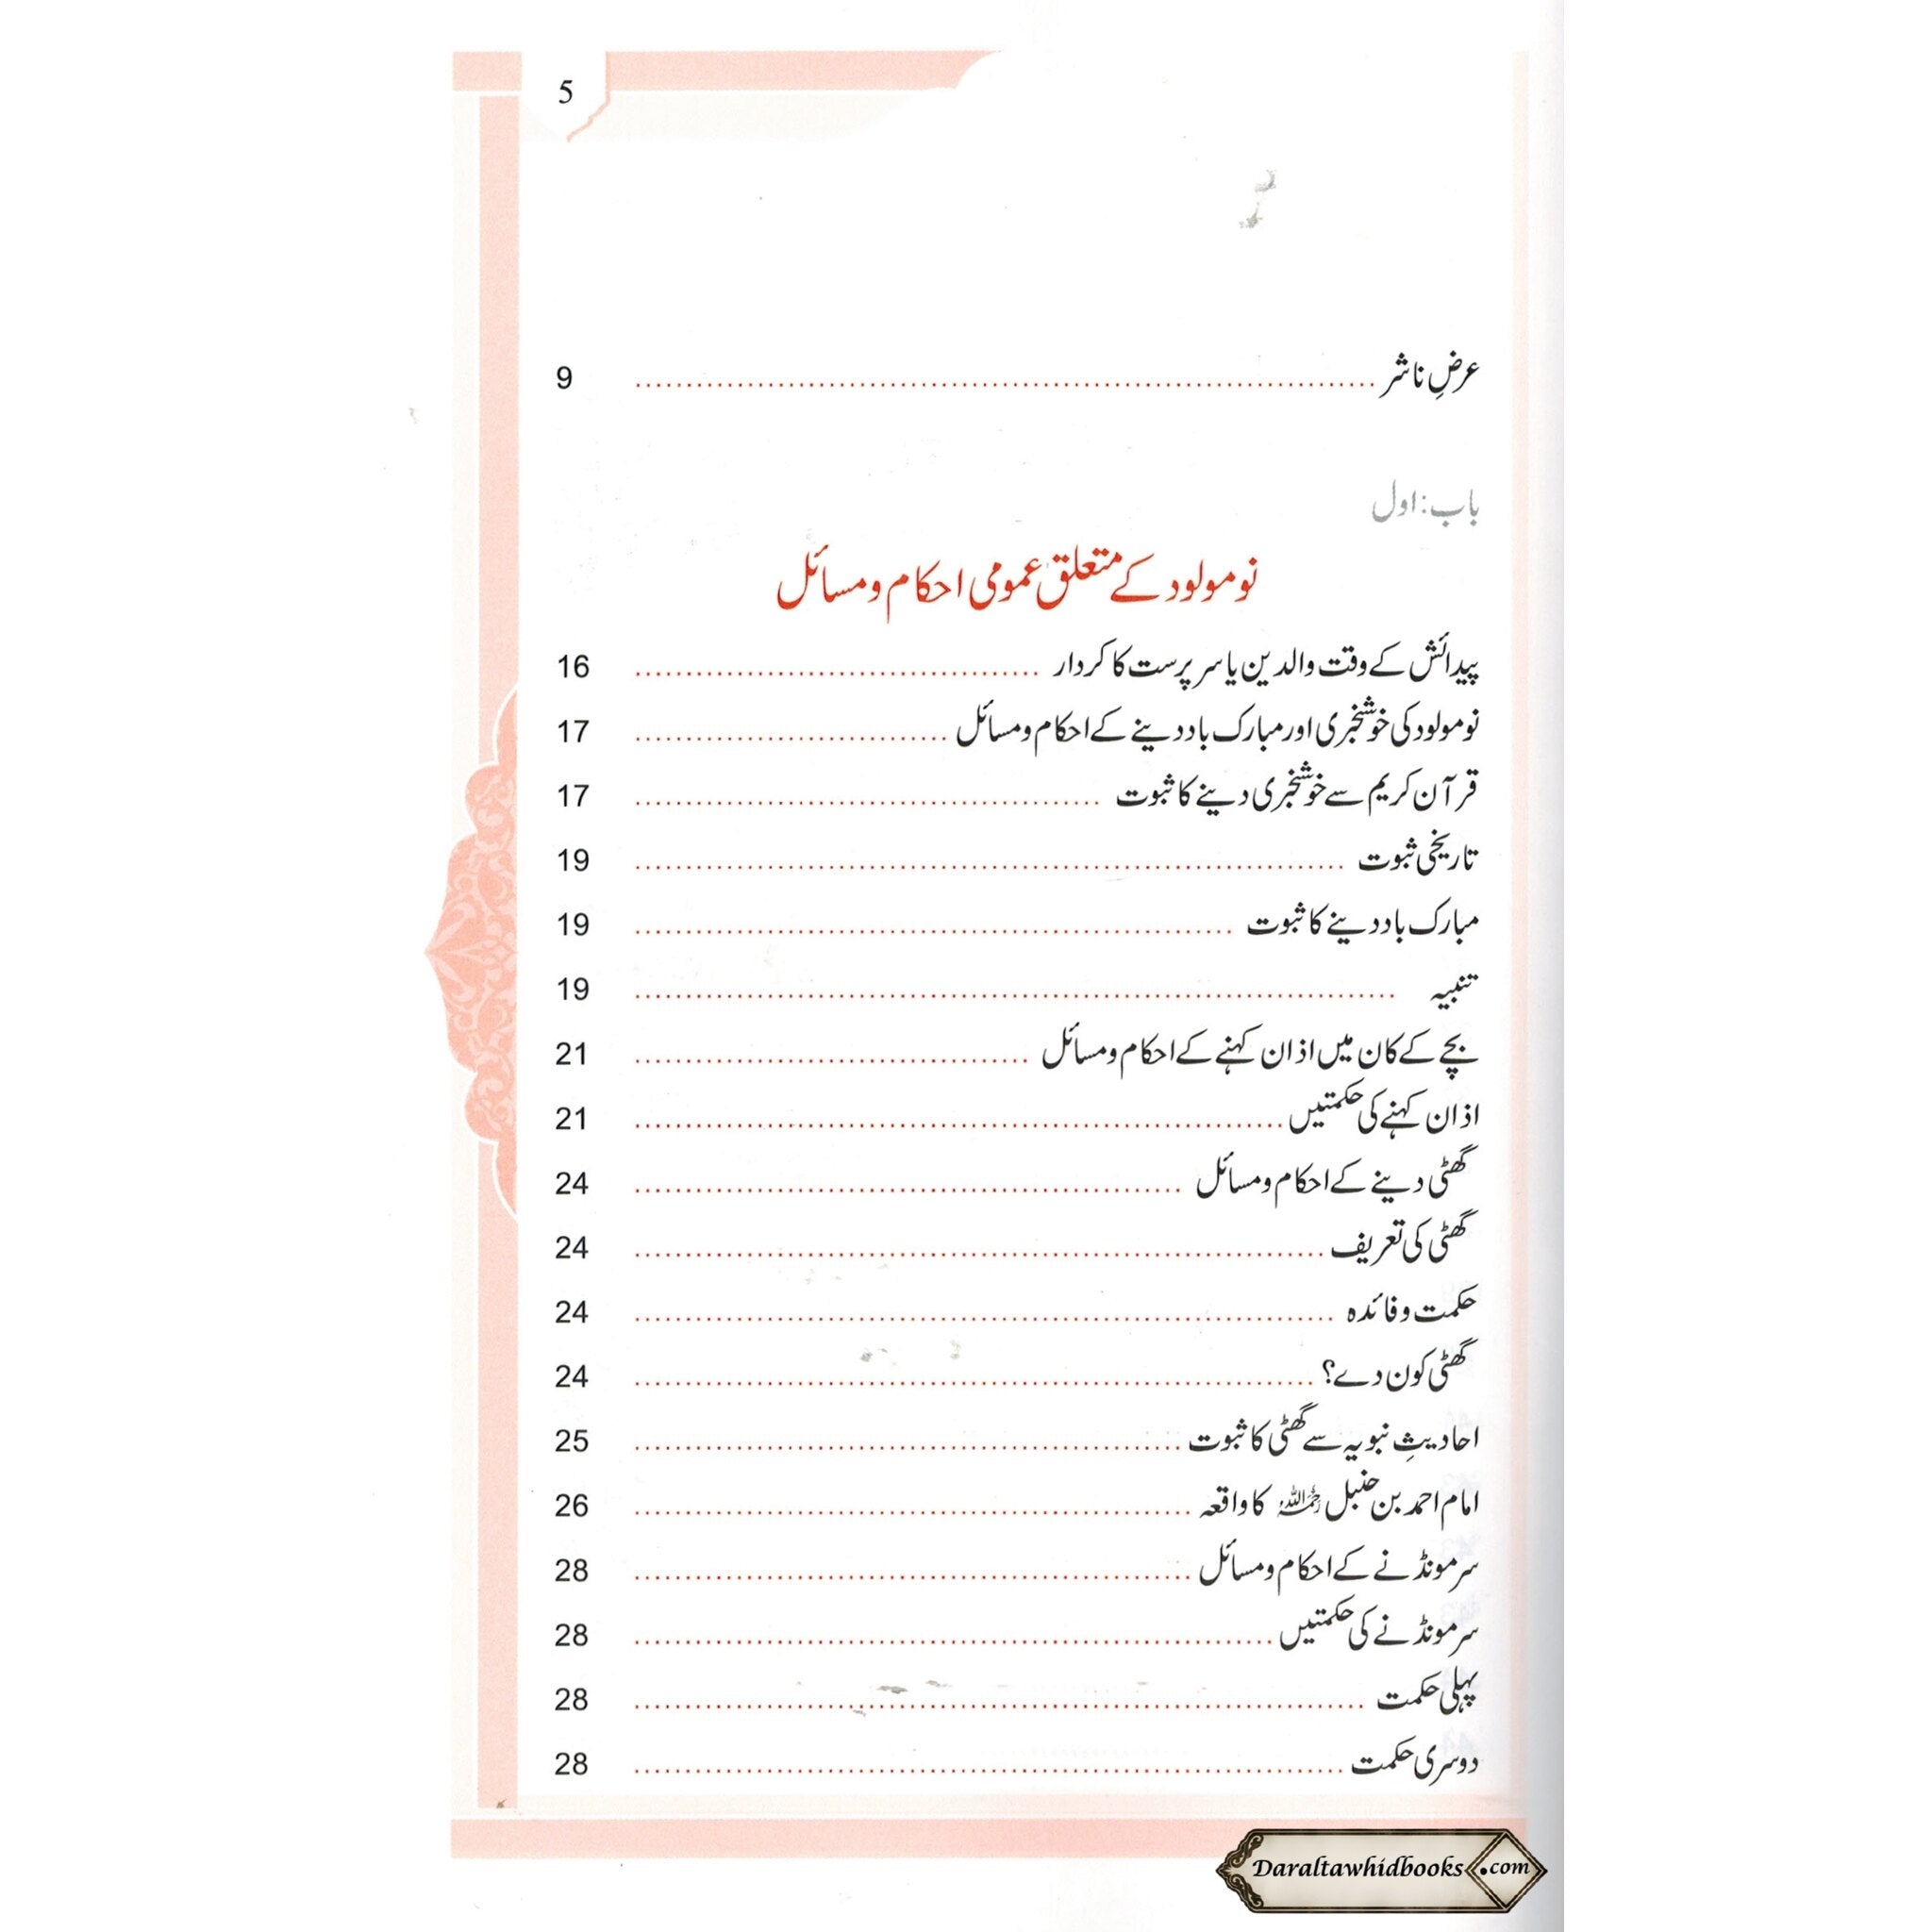 5
عرضِ ناشر ........ 9
باب: اول
نومولود کے متعلق عمومی احکام و مسائل
پیدائش کے وقت والدین یا سرپرست کا کردار ........ 16
نومولود کی خوشخبری اور مبارک باد دینے کے احکام و مسائل ........ 17
قرآن کریم سے خوشخبری دینے کا ثبوت ........ 17
تاریخی ثبوت ........ 19
مبارک باد دینے کا ثبوت ........ 19
تنبیہ ........ 19
بچے کے کان میں اذان کہنے کے احکام و مسائل ........ 21
اذان کہنے کی حکمتیں ........ 21
گھٹی دینے کے احکام و مسائل ........ 24
گھٹی کی تعریف ........ 24
حکمت و فائدہ ........ 24
گھٹی کون دے؟ ........ 24
احادیثِ نبویہ سے گھٹی کا ثبوت ........ 25
امام احمد بن حنبل رحمہ اللہ کا واقعہ ........ 26
سر مونڈنے کے احکام و مسائل ........ 28
سر مونڈنے کی حکمتیں ........ 28
پہلی حکمت ........ 28
دوسری حکمت ........ 28
Daraltawhidbooks.com